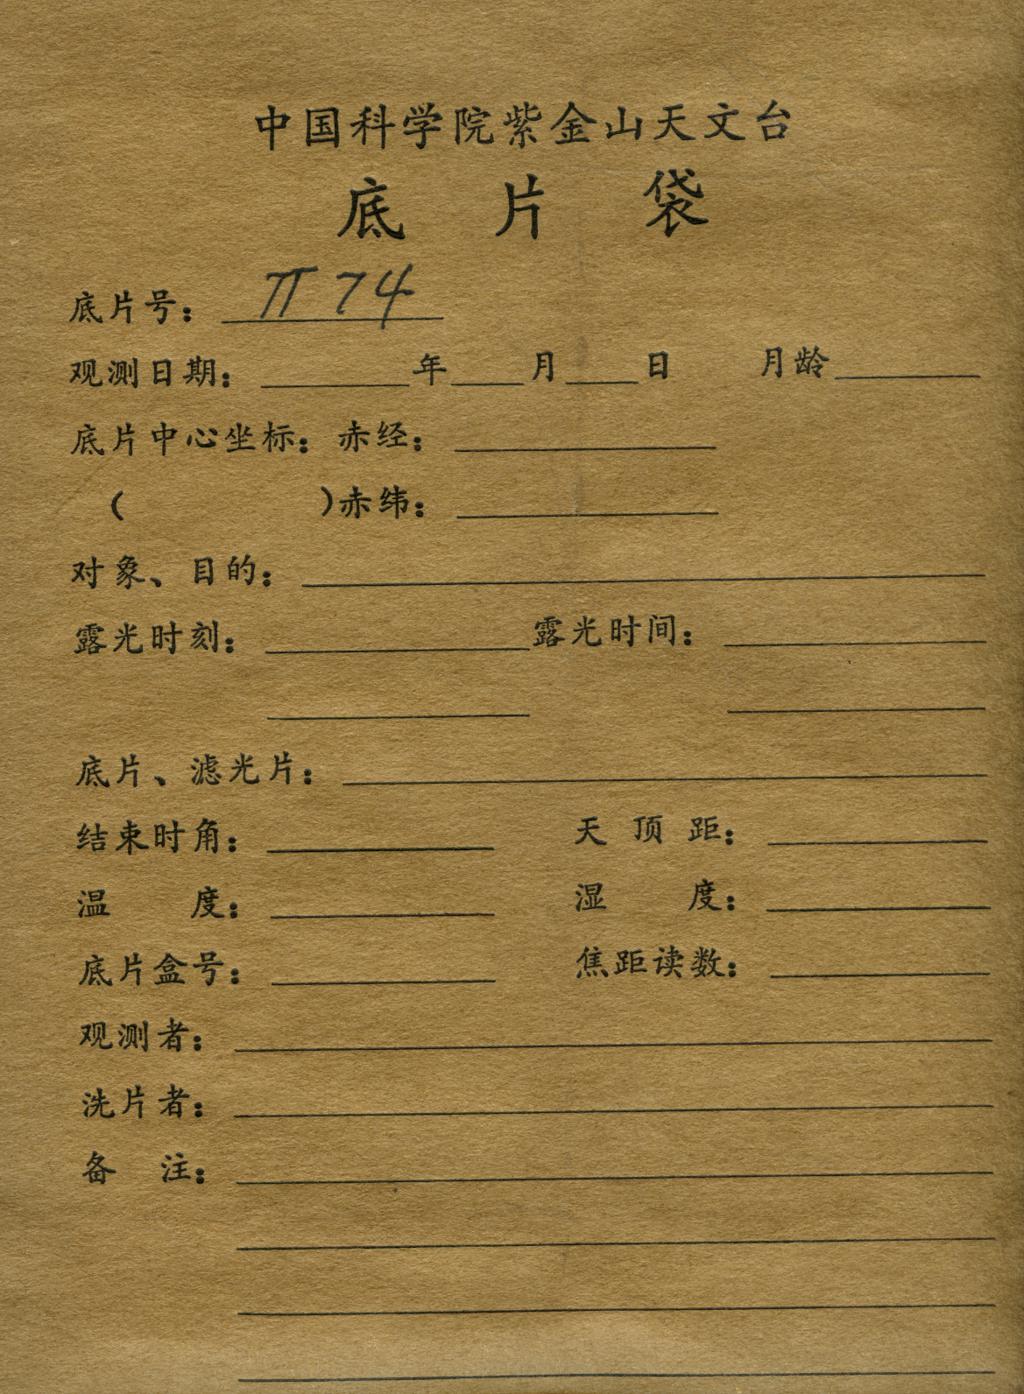 中国科学院紫金山天文台
底片袋
底片号：π 74
观测日期：____年____月____日 月龄____
底片中心坐标：赤经：____
（ ）赤纬：____
对象、目的：____
露光时刻：____露光时间：____
底片、滤光片：____
结束时角：____ 天顶距：____
温度：____ 湿度：____
底片盒号：____ 焦距读数：____
观测者：____
洗片者：____
备注：____